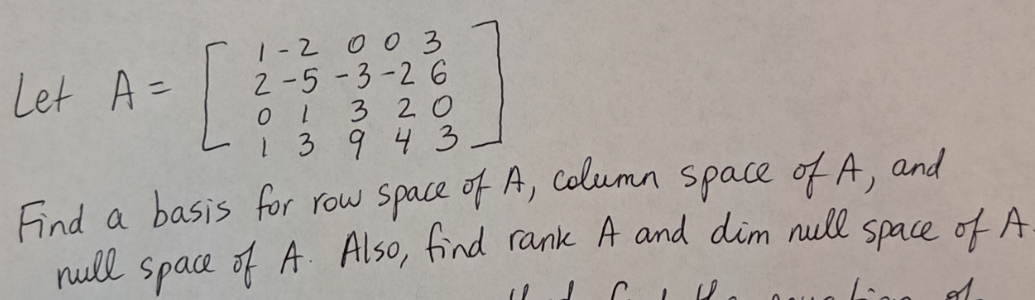 Let A = [ 1 -2 0 0 3
2 -5 -3 -2 6
0 1 3 2 0
1 3 9 4 3 ]
Find a basis for row space of A, column space of A, and
null space of A. Also, find rank A and dim null space of A.